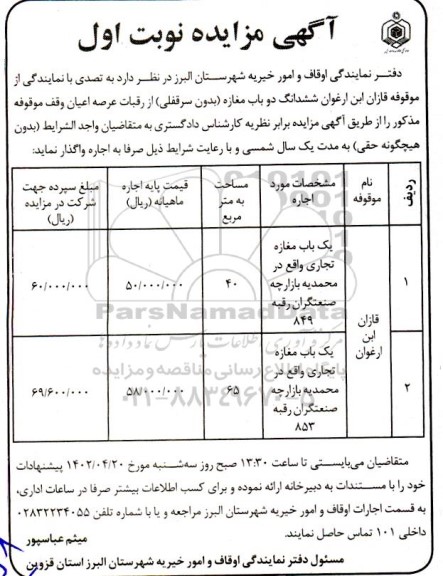 آگهی مزایده نوبت اول
دفتر نمایندگی اوقاف و امور خیریه شهرستان البرز در نظر دارد به تصدی با نمایندگی از
موقوفه قازان ابن ارغوان ششدانگ دو باب مغازه (بدون سرقفلی) از رقبات عرصه اعیان وقف موقوفه
مذکور را از طریق آگهی مزایده برابر نظریه کارشناس دادگستری به متقاضیان واجد الشرایط (بدون
هیچگونه حقی) به مدت یک سال شمسی و با رعایت شرایط ذیل صرفا به اجاره واگذار نماید:
ردیف
نام موقوفه
مشخصات مورد اجاره
مساحت به متر مربع
قیمت پایه اجاره ماهیانه (ریال)
مبلغ سپرده جهت شرکت در مزایده (ریال)
۱
قازان ابن ارغوان
یک باب مغازه
تجاری واقع در
محمدیه بازارچه
صنعتگران رقبه
۸۴۹
۴۰
۵۰/۰۰۰/۰۰۰
۶۰/۰۰۰/۰۰۰
۲
یک باب مغازه
تجاری واقع در
محمدیه بازارچه
صنعتگران رقبه
۸۵۳
۶۵
۵۸/۰۰۰/۰۰۰
۶۹/۶۰۰/۰۰۰
ParsNamadData
پایگاه اطلاع رسانی مناقصه و مزایده
۰۲۱-۸۸۳۴۹۶۷۰-۵
متقاضیان می‌بایستی تا ساعت ۱۳:۳۰ صبح روز سه‌شنبه مورخ ۱۴۰۲/۰۴/۲۰ پیشنهادات
خود را با مستندات به دبیرخانه ارائه نموده و برای کسب اطلاعات بیشتر صرفا در ساعات اداری،
به قسمت اجارات اوقاف و امور خیریه شهرستان البرز مراجعه و یا با شماره تلفن ۰۲۸۳۲۲۳۴۰۵۵
داخلی ۱۰۱ تماس حاصل نمایند.
میثم عباسپور
مسئول دفتر نمایندگی اوقاف و امور خیریه شهرستان البرز استان قزوین